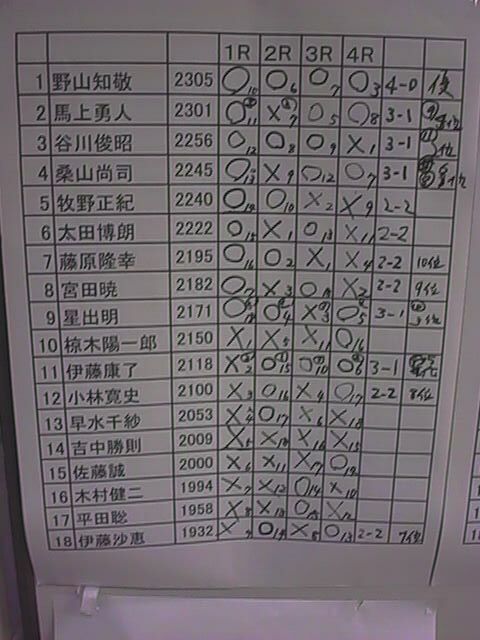 1R 2R 3R 4R
1 野山知敬 2305 ○10 ○6 ○7 ○3 4-0 優
2 馬上勇人 2301 ○11 ×7 ○5 ○18 3-1
3 谷川俊昭 2256 ○12 ○8 ○9 ×1 3-1
4 桑山尚司 2245 ○13 ×9 ○12 ○7 3-1
5 牧野正紀 2240 ○14 ○10 ×2 ×9 2-2
6 太田博朗 2222 ○15 ×1 ○13 ×11 2-2
7 藤原隆幸 2195 ○16 ○2 ×1 ×4 2-2 10位
8 宮田暁 2182 ○17 ×3 ○18 ×2 2-2 9位
9 星出明 2171 ○18 ○4 ×3 ○5 3-1
10 椋木陽一郎 2150 ×1 ×5 ×11 ○16
11 伊藤康了 2118 ×2 ○15 ○10 ○6 3-1
12 小林寛史 2100 ×3 ○16 ×4 ○17 2-2 8位
13 早水千紗 2053 ×4 ○17 ×6 ×18
14 吉中勝則 2009 ×5 ×18 ×16 ×15
15 佐藤誠 2000 ×6 ×11 ×17 ○14
16 木村健二 1994 ×7 ×12 ○14 ×10
17 平田聡 1958 ×8 ×13 ○15 ×12
18 伊藤沙恵 1932 ×9 ○14 ×8 ○13 2-2 7位